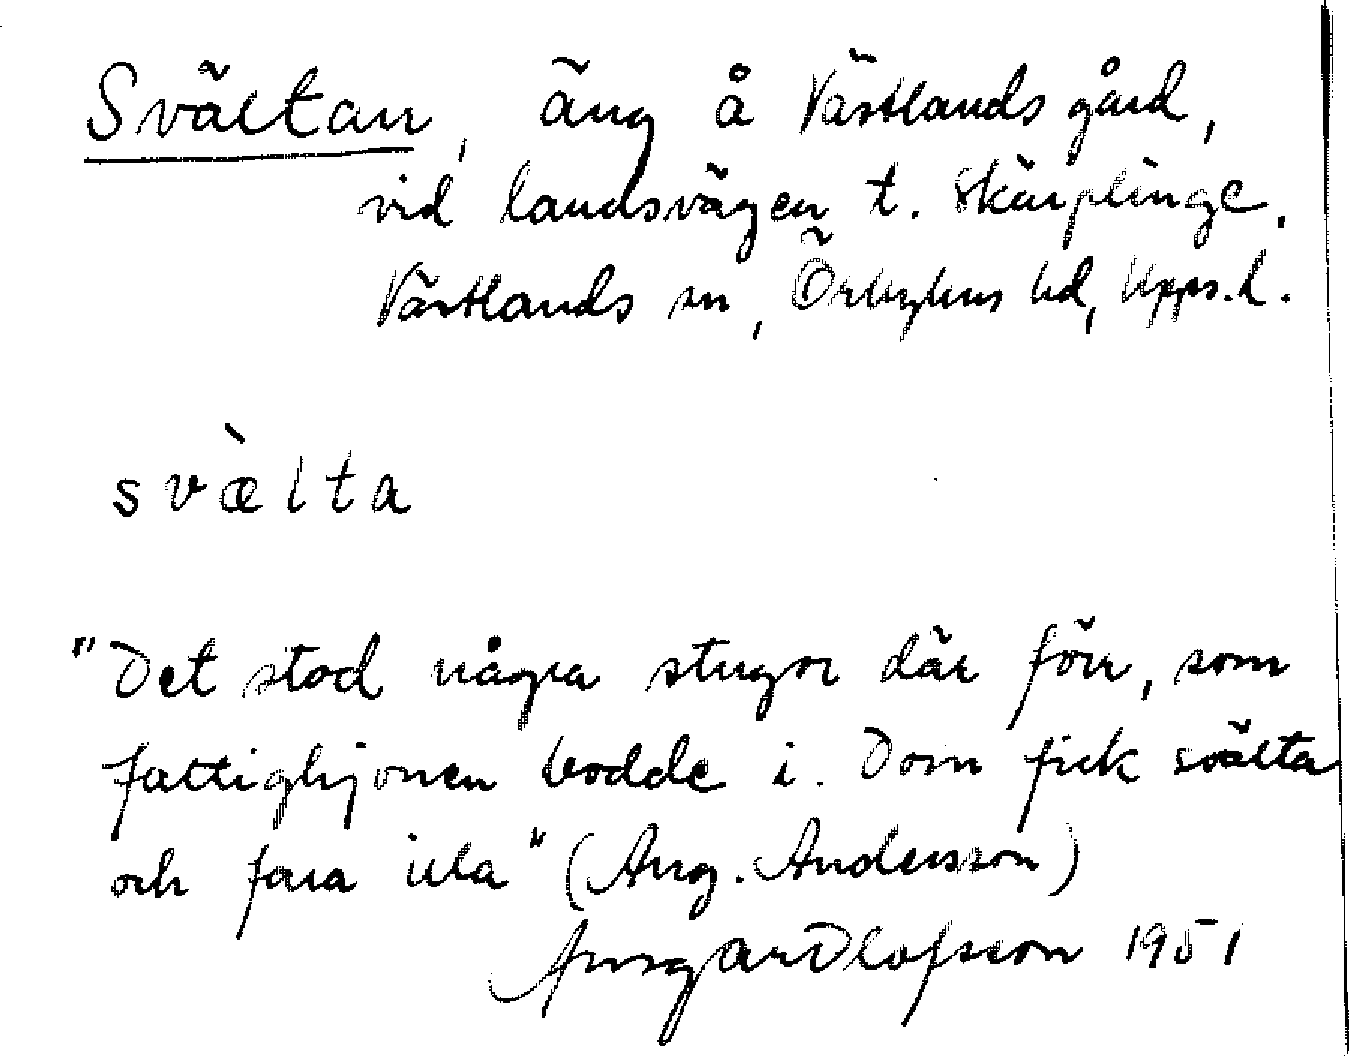 Svältan, äng å Västlands gård,
vid landsvägen t. Skärplinge.
Västlands sn, Örbyhus hd, Upps. l.
svæ̀lta
"Det stod några stugor där förr, som
fattighjonen bodde i. Dom fick svälta
och fara illa" (Aug. Andersson)
Ansgar Olofsson 1951